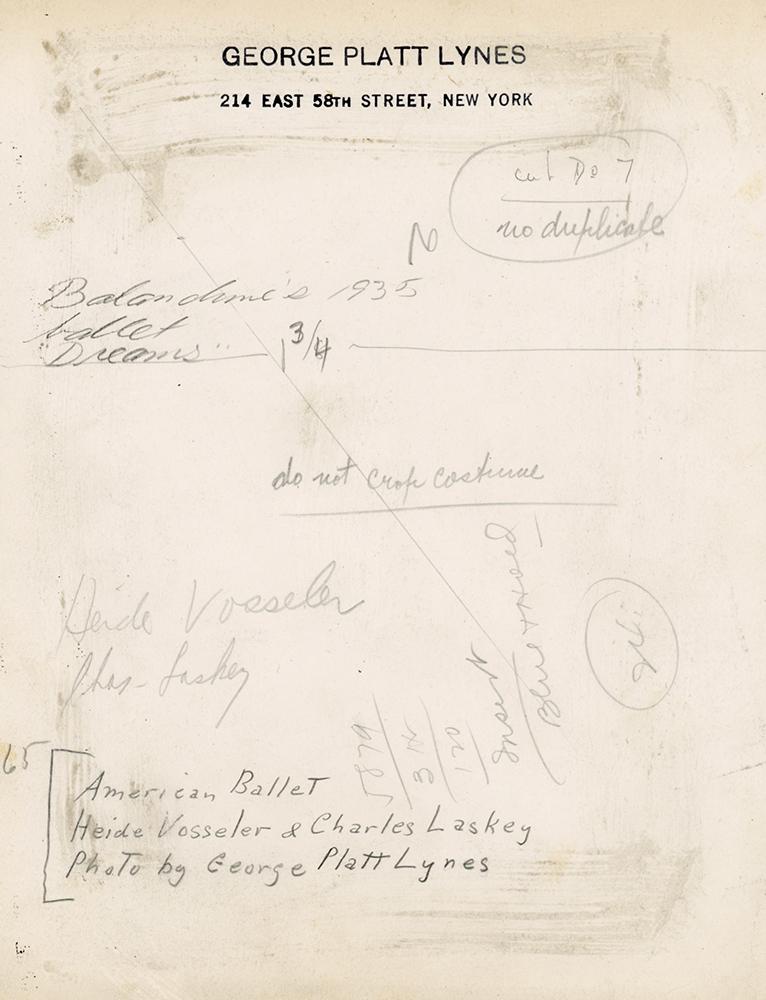 GEORGE PLATT LYNES
214 EAST 58TH STREET, NEW YORK
cut Do 7
no duplicate
N
Balanchine's 1935
ballet
"Dreams"
1 3/4
do not crop costume
Heide Vosseler
Chas. Laskey
Insert
65
American Ballet
Heide Vosseler & Charles Laskey
Photo by George Platt Lynes